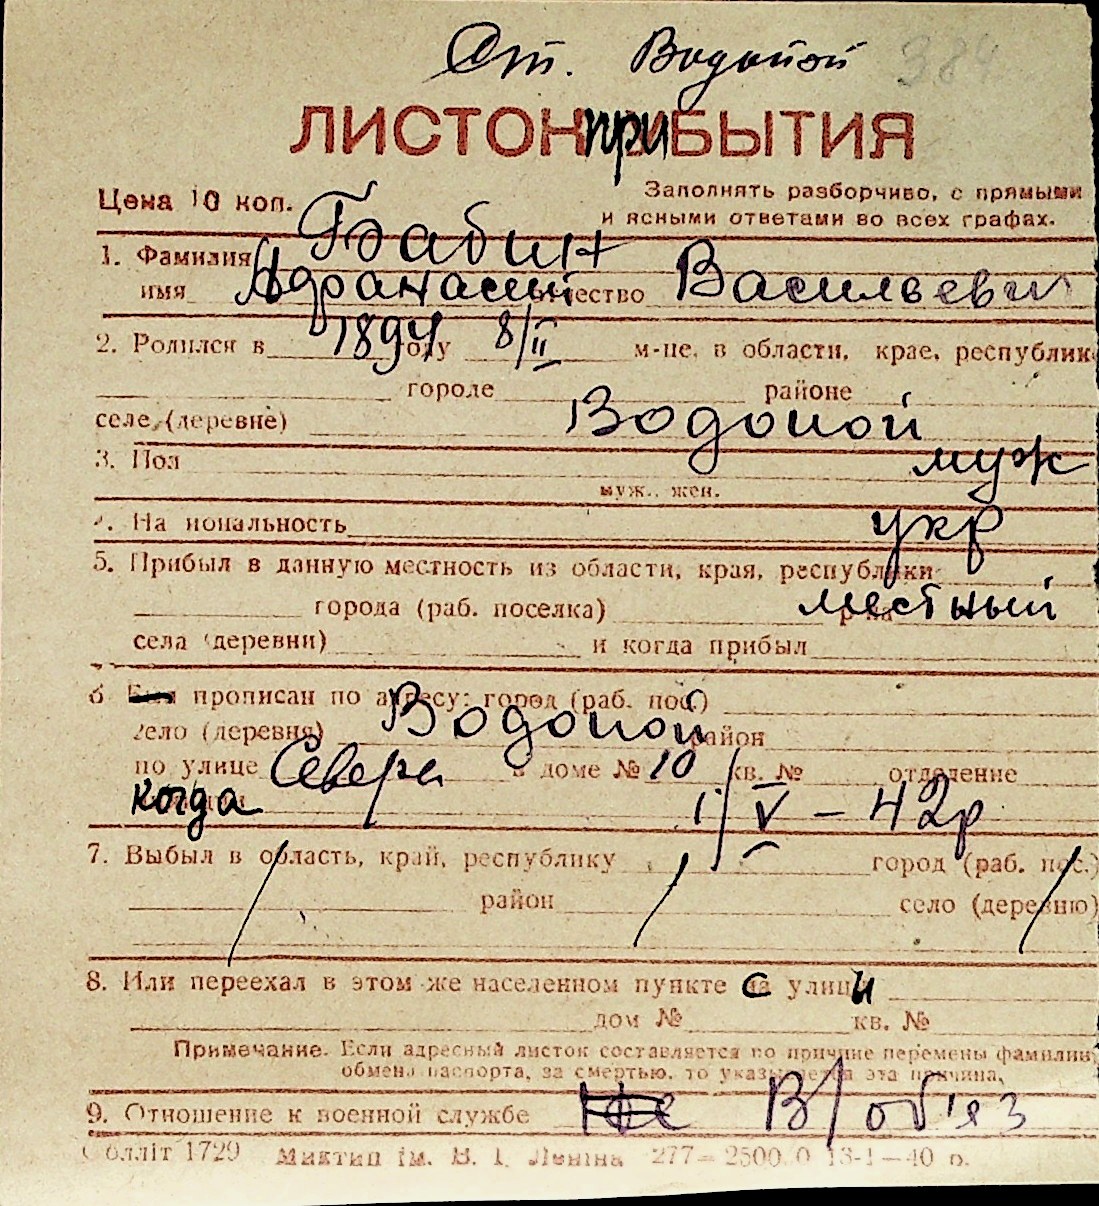 Ст. Водопой 384
ЛИСТОК ПРИБЫТИЯ
Цена 10 коп.
Заполнять разборчиво, с прямыми
и ясными ответами во всех графах.
1. Фамилия Бабин
имя Афанасий отчество Васильевич
2. Родился в 1894 году 8/II м-це, в области, крае, республике
городе районе
селе, (деревне) Водопой
3. Пол муж
муж., жен.
4. Национальность укр
5. Прибыл в данную местность из области, края, республики
города (раб. поселка) р-на местный
села (деревни) и когда прибыл
6 Был прописан по адресу: город (раб. пос.)
село (деревня) Водопой район
по улице Северн в доме № 10 кв. № отделение
когда 1/V – 42р
7. Выбыл в область, край, республику город (раб. пос.)
район село (деревню)
8. Или переехал в этом же населенном пункте с улици
дом № кв. №
Примечание. Если адресный листок составляется по причине перемены фамилии,
обмена паспорта, за смертью, то указывается эта причина.
9. Отношение к военной службе Не В/об'яз
Облліт 1729 Миктип ім. В. І. Леніна 277—2500.0 13-1—40 р.